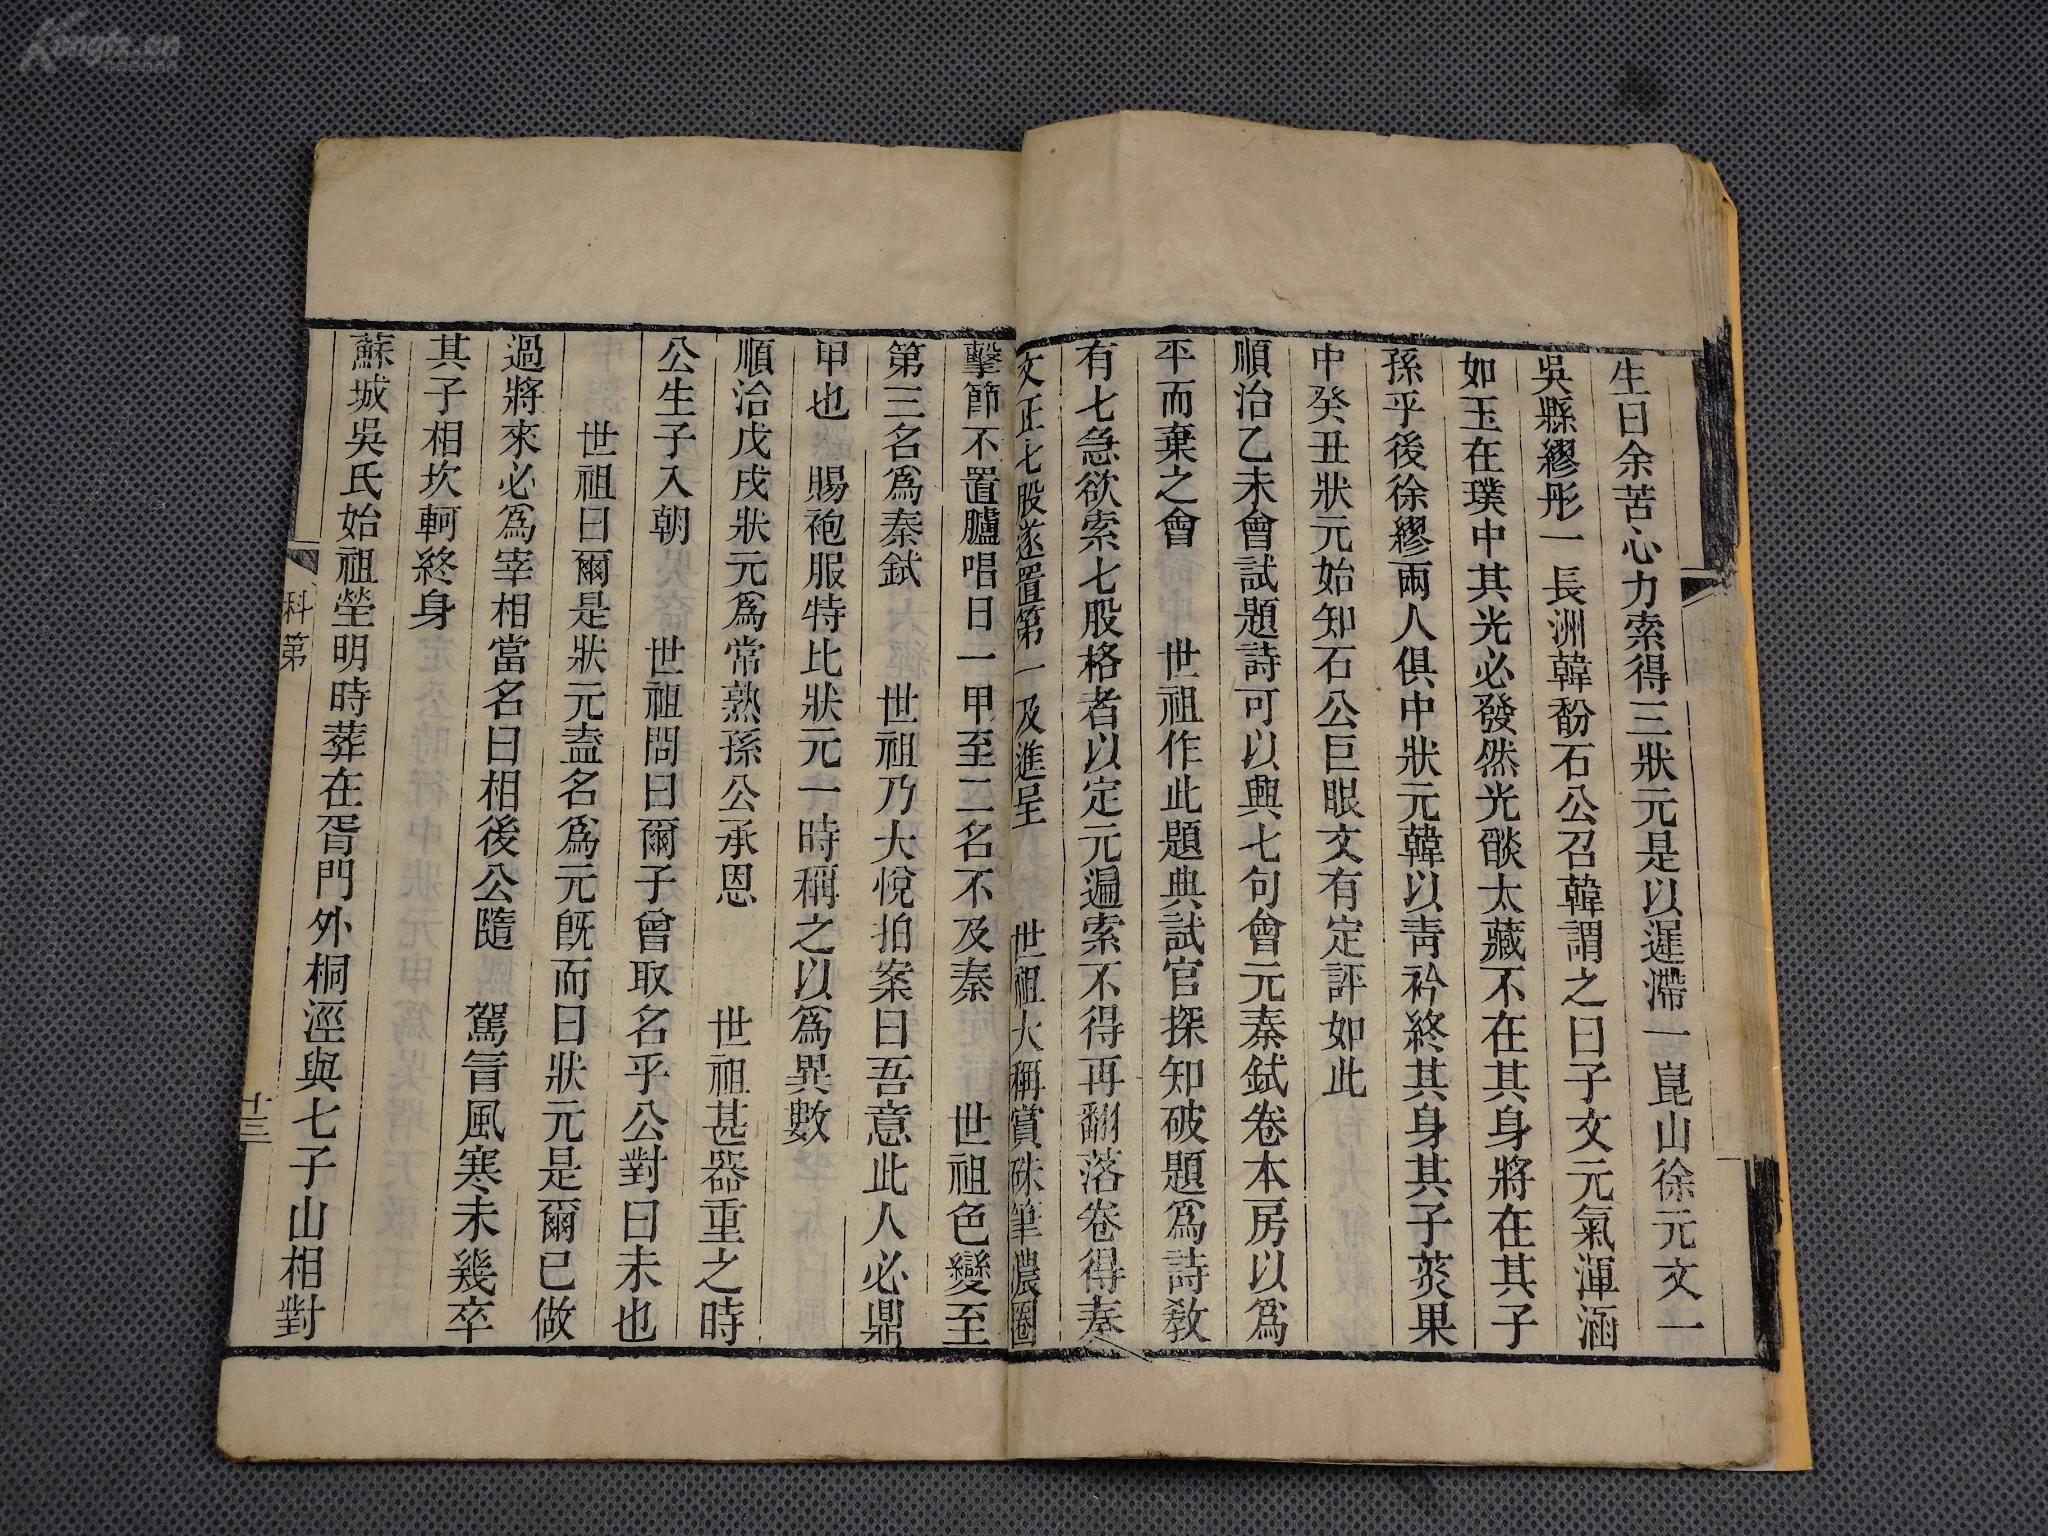 生曰余苦心力索得三狀元是以遲滯一崑山徐元文一
吳縣繆彤一長洲韓馚石公召韓謂之曰子文元氣渾涵
如玉在璞中其光必發然光燄太藏不在其身將在其子
孫乎後徐繆兩人俱中狀元韓以靑衿終其身其子菼果
中癸丑狀元始知石公巨眼文有定評如此
順治乙未會試題詩可以興七句會元秦鉽卷本房以爲
平而棄之會　世祖作此題典試官探知破題爲詩敎
有七急欲索七股格者以定元遍索不得再翻落卷得秦
文正七股遂置第一及進呈　世祖大稱賞硃筆濃圈
擊節不置臚唱日一甲至二名不及秦　世祖色變至
第三名爲秦鉽　世祖乃大悅拍案曰吾意此人必鼎
甲也　賜袍服特比狀元一時稱之以爲異數
順治戊戌狀元爲常熟孫公承恩　世祖甚器重之時
公生子入朝　世祖問曰爾子曾取名乎公對曰未也
世祖曰爾是狀元盍名爲元旣而曰狀元是爾已做
過將來必爲宰相當名曰相後公隨　駕冐風寒未幾卒
其子相坎軻終身
蘇城吳氏始祖塋明時葬在胥門外桐涇與七子山相對
科第
十三
Kongfz.cn